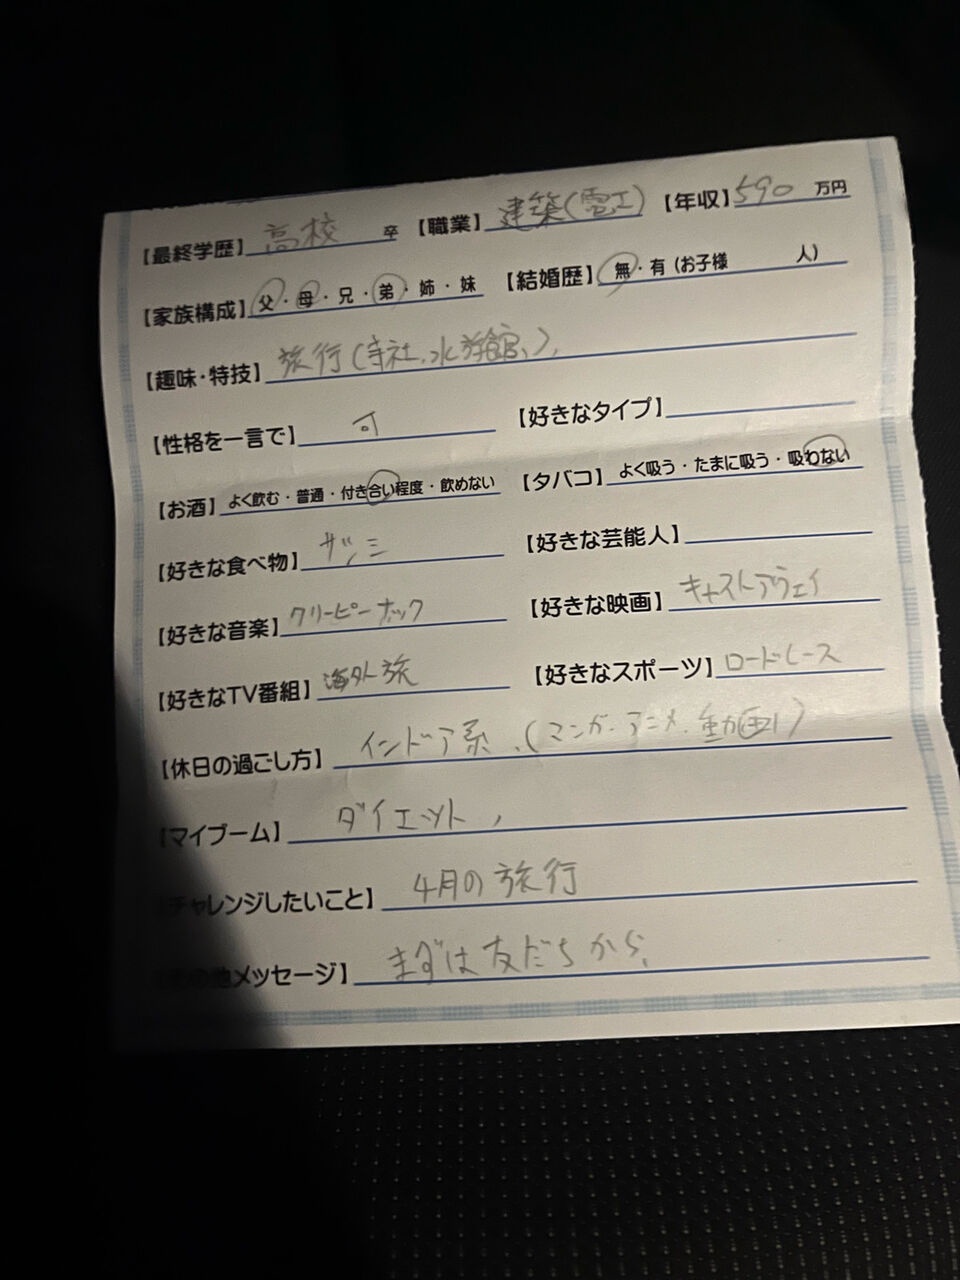 【最終学歴】高校 卒 【職業】建築(電工) 【年収】590 万円
【家族構成】父・母・兄・弟・姉・妹 【結婚歴】無・有(お子様 人)
【趣味・特技】旅行(寺社、水族館、)、
【性格を一言で】 【好きなタイプ】
【お酒】よく飲む・普通・付き合い程度・飲めない 【タバコ】よく吸う・たまに吸う・吸わない
【好きな食べ物】 【好きな芸能人】
【好きな音楽】クリーピーナッツ 【好きな映画】キャストアウェイ
【好きなTV番組】海外旅 【好きなスポーツ】ロードレース
【休日の過ごし方】インドア系、(マンガ、アニメ、動画)
【マイブーム】ダイエット、
チャレンジしたいこと】4月の旅行
の他メッセージ】まずは友だちから、